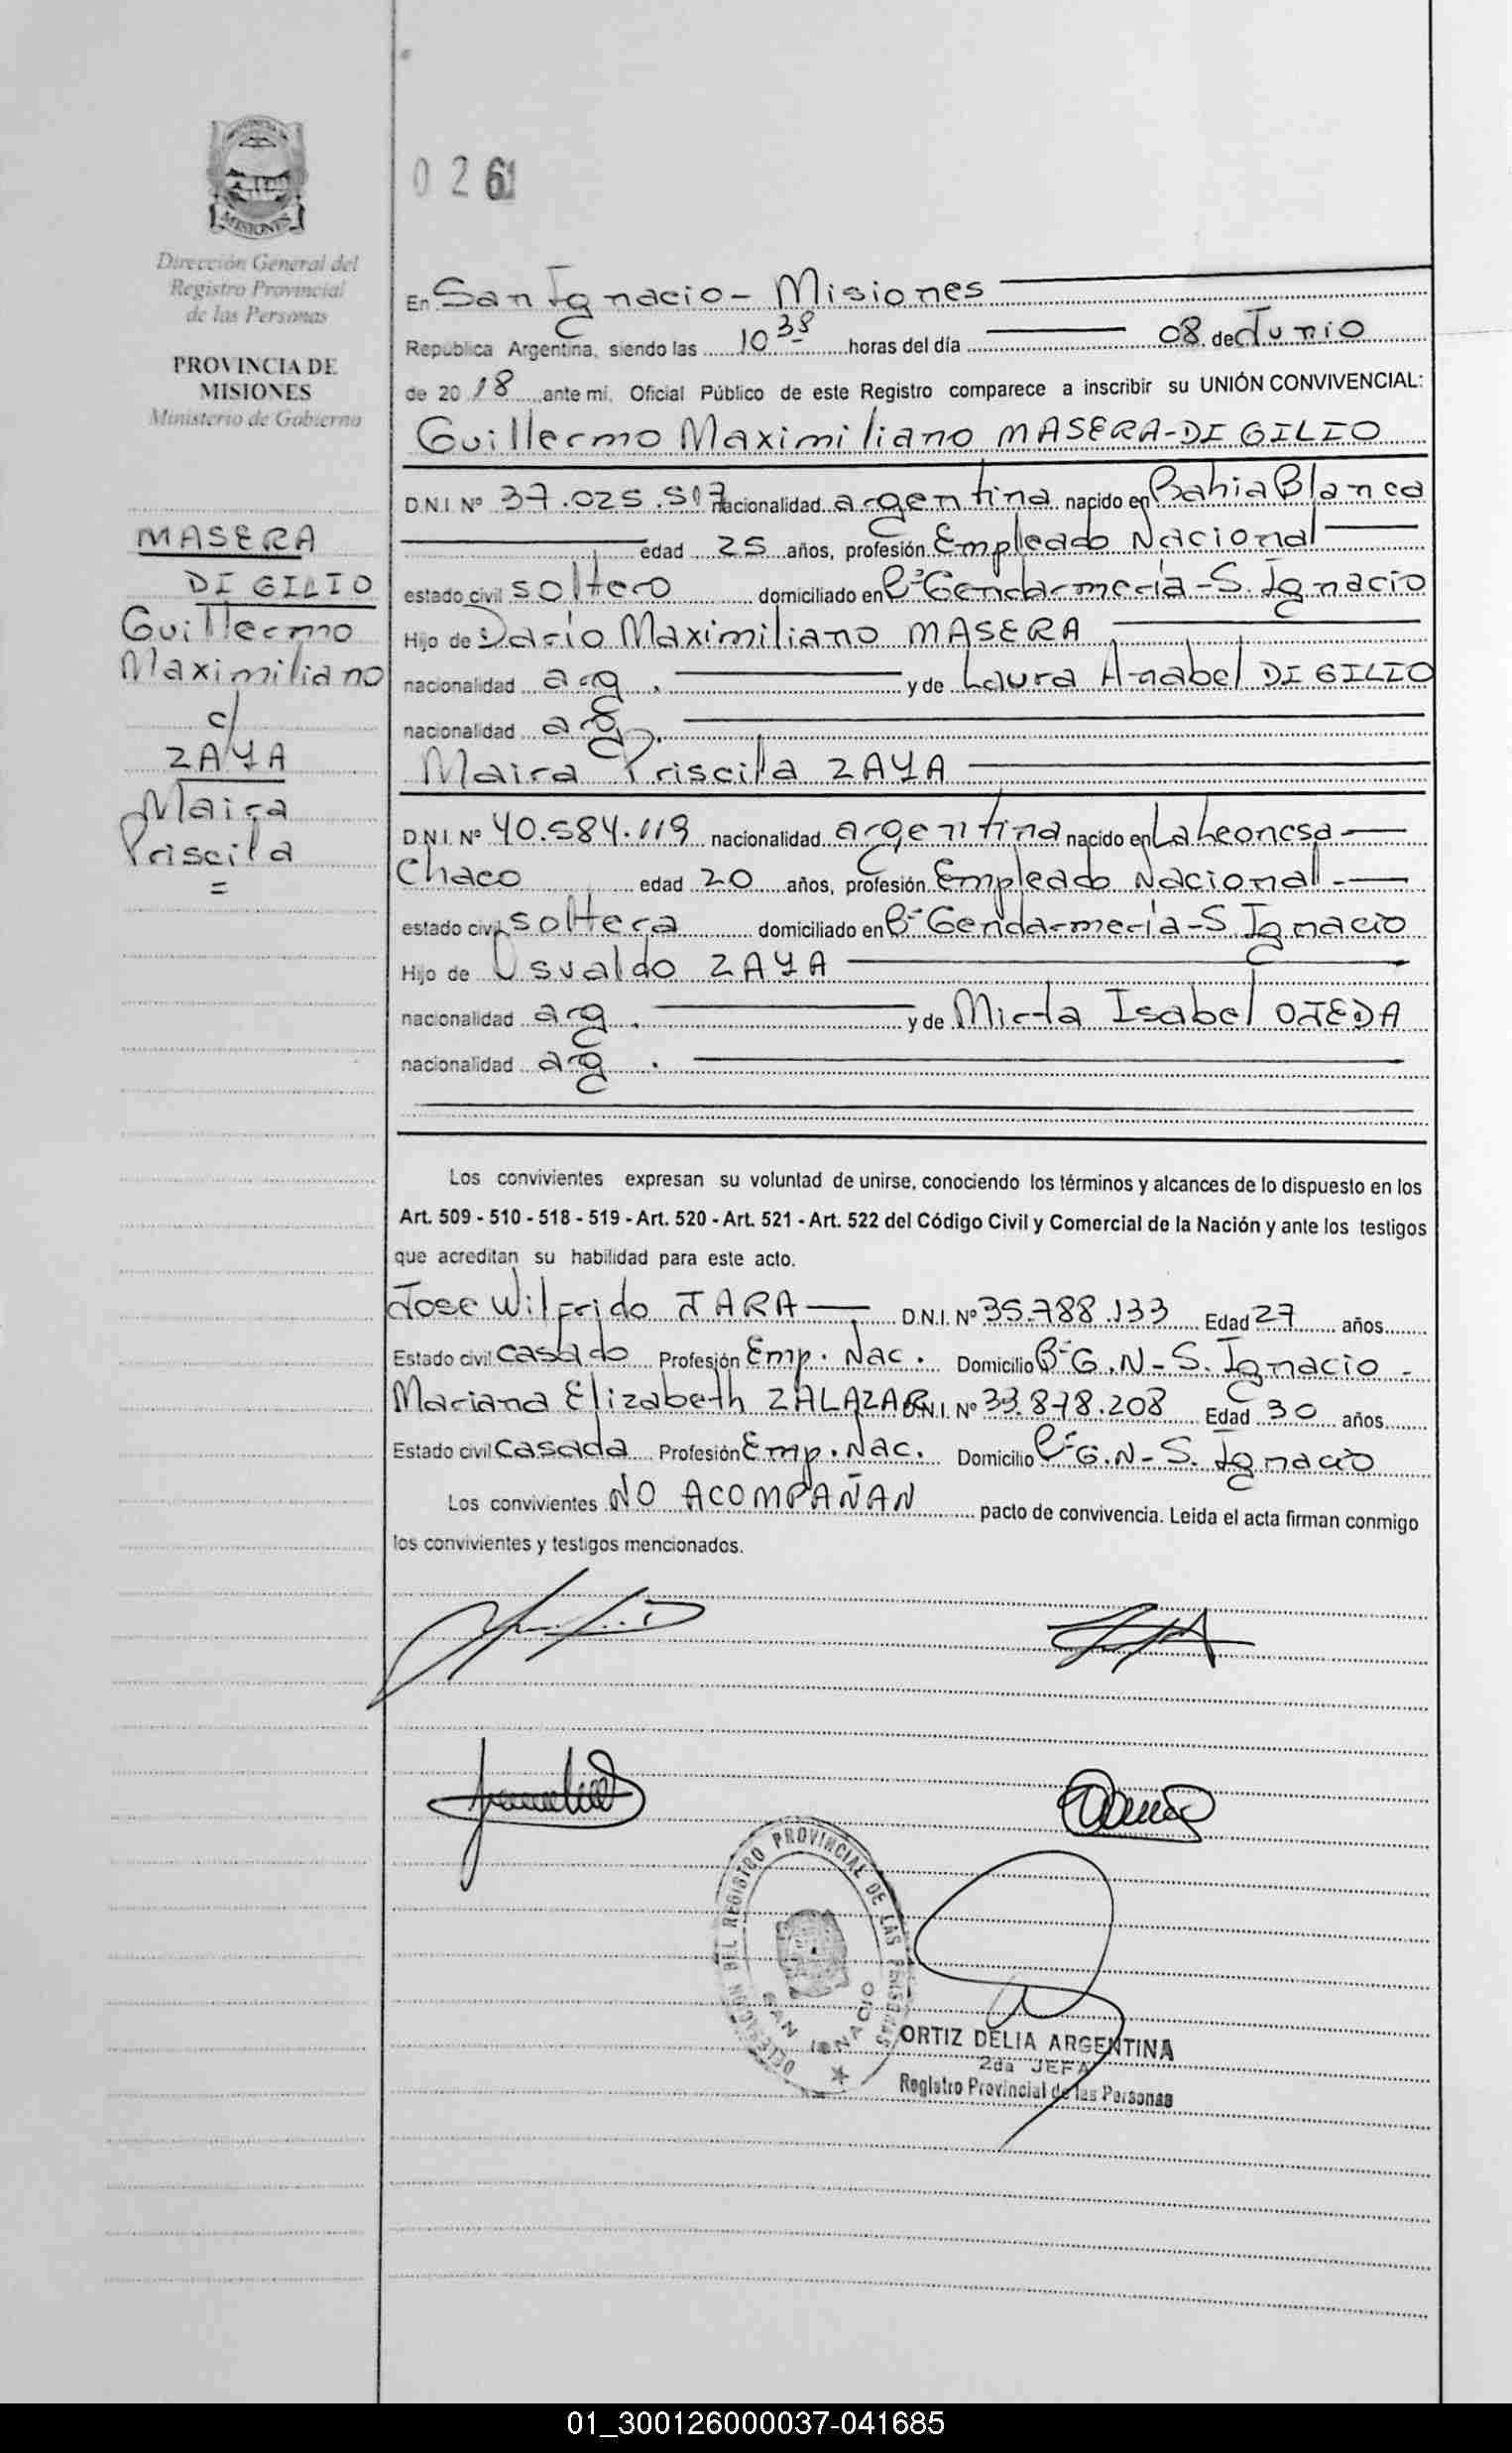 PROVINCIA DE
MISIONES
Dirección General del
Registro Provincial
de las Personas
PROVINCIA DE
MISIONES
Ministerio de Gobierno
MASERA
DI GILIO
Guillermo
Maximiliano
c/
ZAYA
Maira
Priscila
=
026
En San Ignacio - Misiones
República Argentina, siendo las 10 38 horas del día 08 de Junio
de 2018 ante mí, Oficial Público de este Registro comparece a inscribir su UNIÓN CONVIVENCIAL:
Guillermo Maximiliano MASERA-DI GILIO
D.N.I. Nº 37.025.517 nacionalidad argentina nacido en Bahia Blanca
edad 25 años, profesión Empleado Nacional
estado civil soltero domiciliado en Bº Gendarmería - S. Ignacio
Hijo de Darío Maximiliano MASERA
nacionalidad arg. y de Laura Anabel DI GILIO
nacionalidad arg.
Maira Priscila ZAYA
D.N.I. Nº 40.584.119 nacionalidad argentina nacido en La Leonesa
Chaco edad 20 años, profesión Empleado Nacional -
estado civil soltera domiciliado en Bº Gendarmería - S Ignacio
Hijo de Osvaldo ZAYA
nacionalidad arg. y de Mirta Isabel OJEDA
nacionalidad arg.
Los convivientes expresan su voluntad de unirse, conociendo los términos y alcances de lo dispuesto en los
Art. 509 - 510 - 518 - 519 - Art. 520 - Art. 521 - Art. 522 del Código Civil y Comercial de la Nación y ante los testigos
que acreditan su habilidad para este acto.
Jose Wilfrido JARA D.N.I. Nº 35.788.133 Edad 27 años
Estado civil casado Profesión Emp. Nac. Domicilio Bº G.N - S. Ignacio -
Mariana Elizabeth ZALAZAR D.N.I. Nº 33.878.208 Edad 30 años
Estado civil casada Profesión Emp. Nac. Domicilio Bº G.N - S. Ignacio
Los convivientes NO ACOMPAÑAN pacto de convivencia. Leida el acta firman conmigo
los convivientes y testigos mencionados.
DELEGACION DEL REGISTRO PROVINCIAL DE LAS PERSONAS
SAN IGNACIO
ORTIZ DELIA ARGENTINA
2da JEFA
Registro Provincial de las Personas
01_300126000037-041685